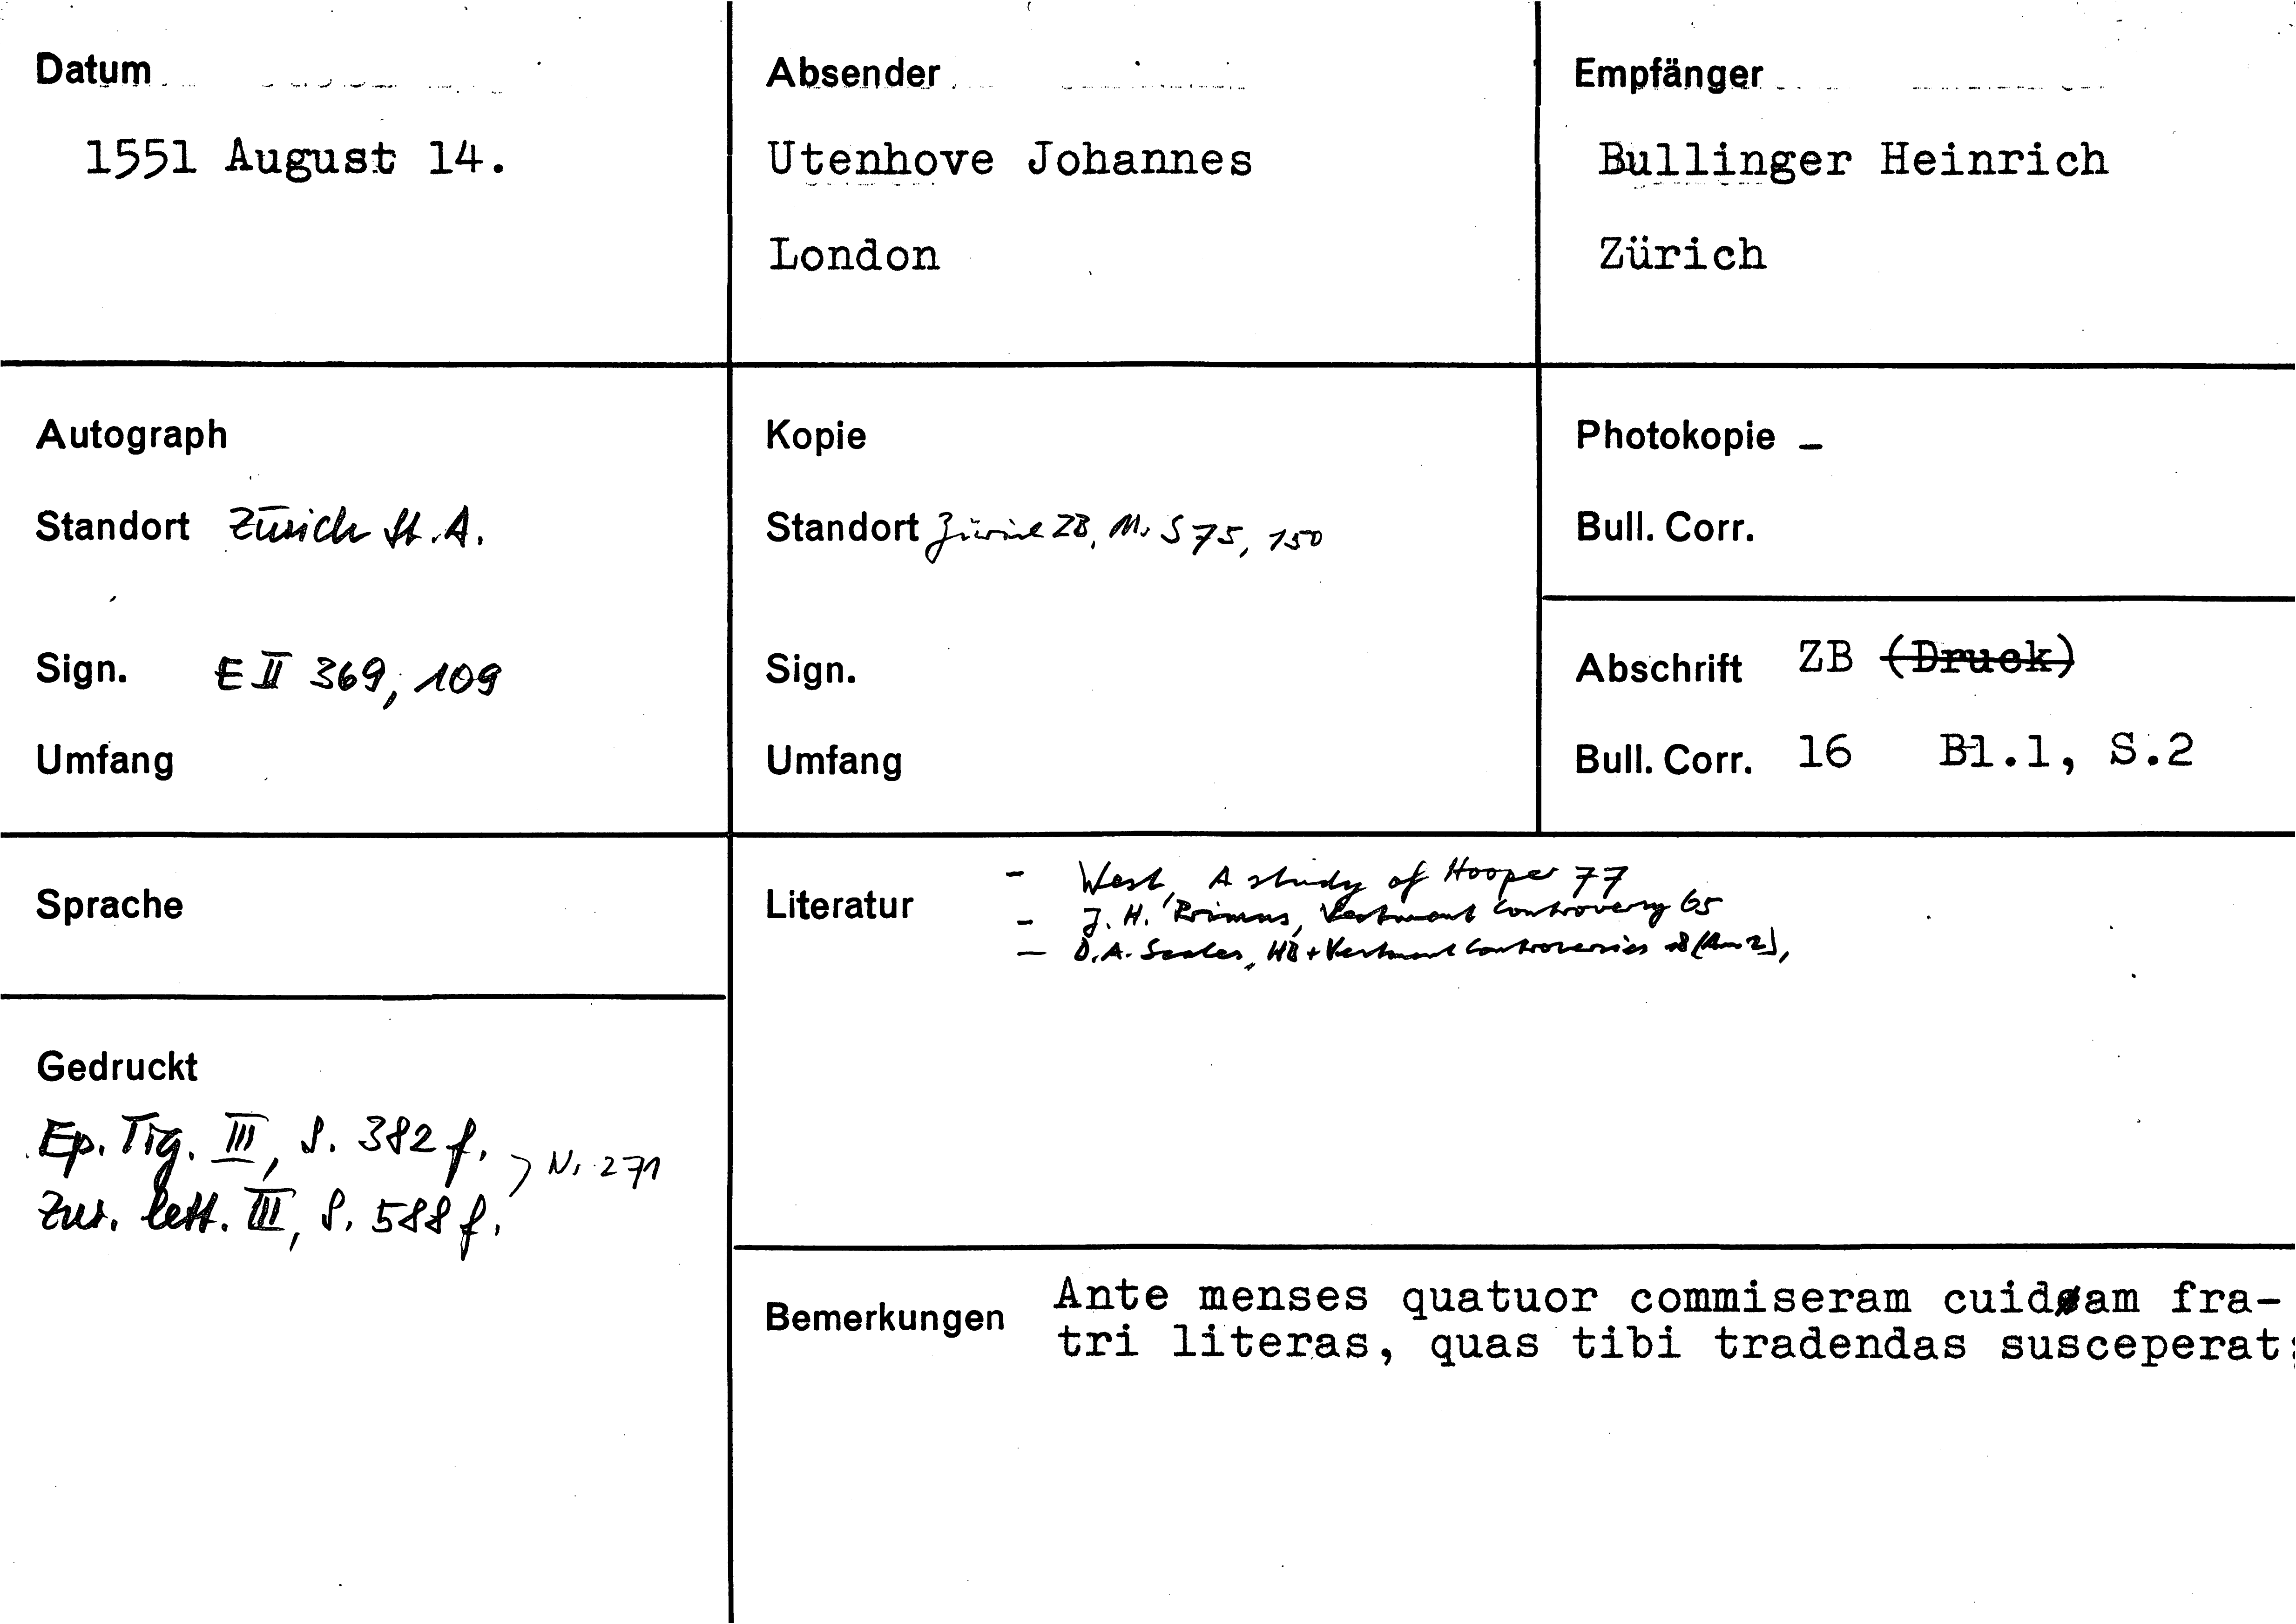 Datum
1551 August 14.
Absender
Utenhove Johannes
London
Empfänger
Bullinger Heinrich
Zürich
Autograph
Standort Zürich St.A.
Sign. E II 369, 109
Umfang
Kopie
Standort Zürich ZB, Ms S 75, 150
Sign.
Umfang
Photokopie –
Bull. Corr.
Abschrift ZB (Druck)
Bull. Corr. 16 Bl.1, S.2
Sprache
Literatur
- West, A study of Hooper 77
- J. H. Primus, Vestment Controversy 65
- D.A. Scales, HB + Vestment Controversies
Gedruckt
Ep. Tig. III, S. 382 f.
Zur. lett. III, S. 588 f.
) Nr. 271
Bemerkungen
Ante menses quatuor commiseram cuidam fra-
tri literas, quas tibi tradendas susceperat: